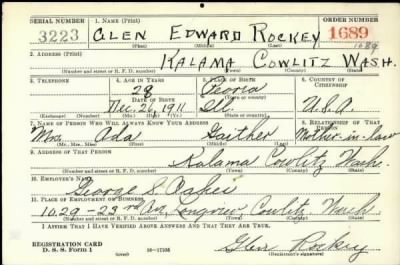 SERIAL NUMBER 1. NAME (Print) ORDER NUMBER
3223 GLEN EDWARD ROCKEY 1689
(First) (Middle) (Last) 1689
2. ADDRESS (Print)
KALAMA COWLITZ WASH.
(Number and street or R. F. D. number) (Town) (County) (State)
3. TELEPHONE 4. AGE IN YEARS 5. PLACE OF BIRTH 6. COUNTRY OF CITIZENSHIP
28 Peoria
DATE OF BIRTH (Town or county)
Dec. 21 1911 Ill. U.S.A.
(Exchange) (Number) (Mo.) (Day) (Yr.) (State or country)
7. NAME OF PERSON WHO WILL ALWAYS KNOW YOUR ADDRESS 8. RELATIONSHIP OF THAT PERSON
Mrs. Ada Gaither Mother-in-law
(Mr., Mrs., Miss) (First) (Middle) (Last)
9. ADDRESS OF THAT PERSON
Kalama Cowlitz Wash.
(Number and street or R. F. D. number) (Town) (County) (State)
10. EMPLOYER'S NAME
George S.
11. PLACE OF EMPLOYMENT OR BUSINESS
1029-23rd Av. Longview Cowlitz Wash
(Number and street or R. F. D. number) (Town) (County) (State)
I AFFIRM THAT I HAVE VERIFIED ABOVE ANSWERS AND THAT THEY ARE TRUE.
REGISTRATION CARD
D. S. S. Form 1 16—17105 Glen Rockey
(Registrant's signature)